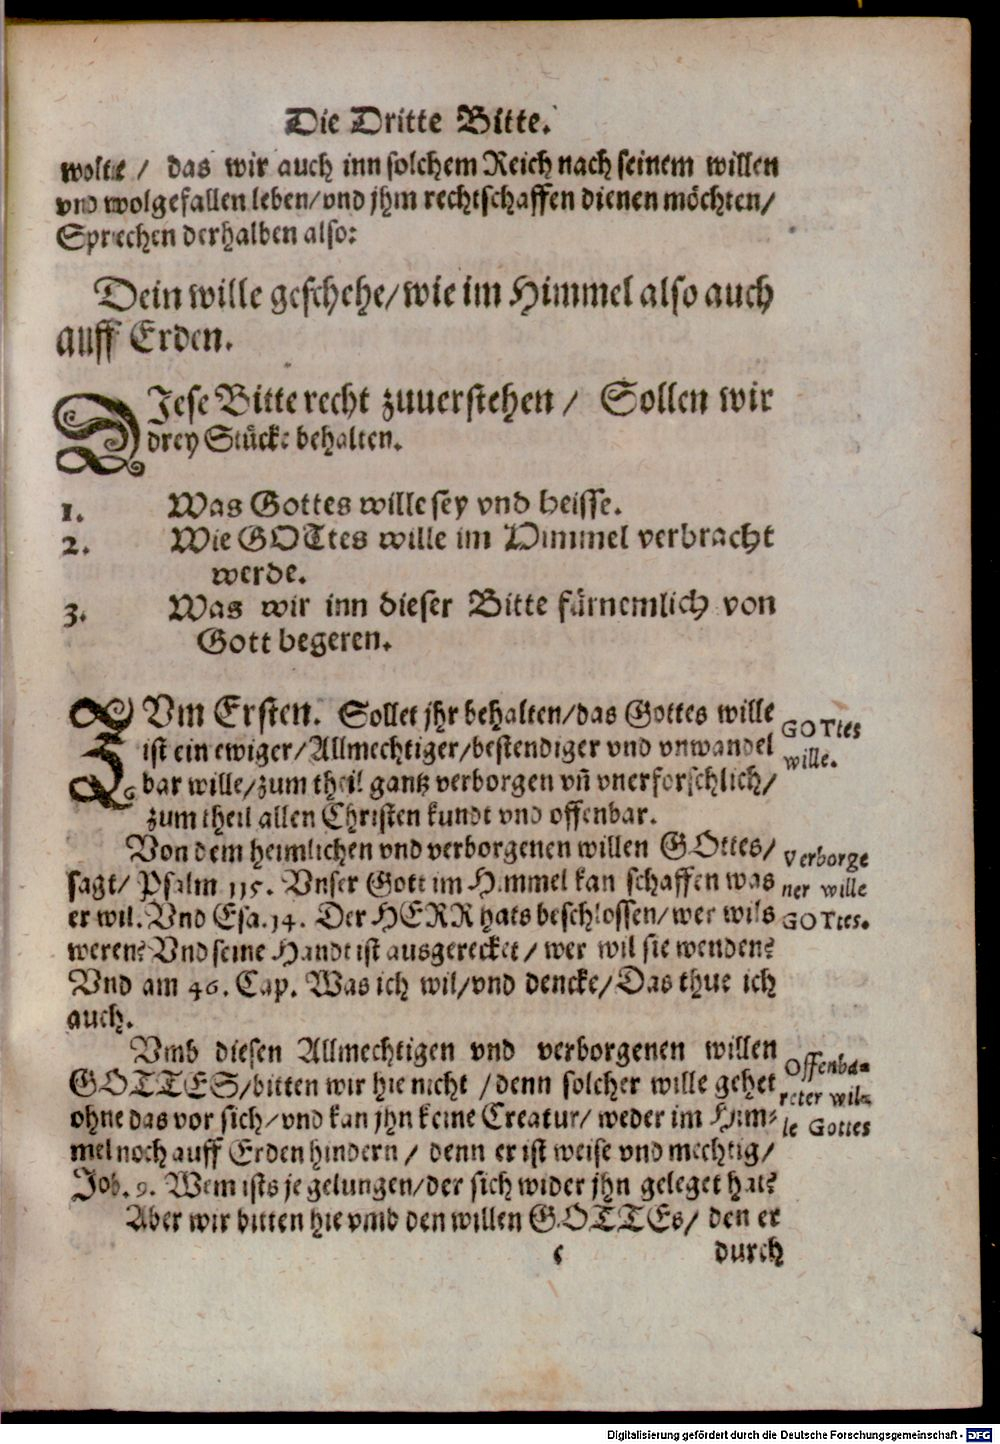 Die Dritte Bitte.
wolte / das wir auch inn solchem Reich nach seinem willen
vnd wolgefallen leben/vnd jhm rechtschaffen dienen möchten/
Sprechen derhalben also:
Dein wille geschehe/wie im Himmel also auch
auff Erden.
DIese Bitte recht zuuerstehen / Sollen wir
drey Stücke behalten.
1. Was Gottes wille sey vnd heisse.
2. Wie GOTtes wille im Himmel verbracht
werde.
3. Was wir inn dieser Bitte fürnemlich von
Gott begeren.
ZVm Ersten. Sollet jhr behalten/das Gottes wille
ist ein ewiger/Allmechtiger/bestendiger vnd vnwandel
bar wille/zum theil gantz verborgen vñ vnerforschlich/
zum theil allen Christen kundt vnd offenbar.
GOTtes
wille.
Von dem heimlichen vnd verborgenen willen GOttes/
sagt/ Psalm 115. Vnser Gott im Himmel kan schaffen was
er wil. Vnd Esa.14. Der HERR hats beschlossen/wer wils
weren? Vnd seine Handt ist ausgerecket / wer wil sie wenden?
Vnd am 46. Cap. Was ich wil/vnd dencke/Das thue ich
auch.
Verborge
ner wille
GOTtes.
Vmb diesen Allmechtigen vnd verborgenen willen
GOTTES/bitten wir hie nicht /denn solcher wille gehet
ohne das vor sich/vnd kan jhn keine Creatur/ weder im Him-
mel noch auff Erden hindern / denn er ist weise vnd mechtig/
Job. 9. Wem ists je gelungen/der sich wider jhn geleget hat?
Offenba-
reter wil-
le Gottes
Aber wir bitten hie vmb den willen GOTTEs/ den er
c durch
Digitalisierung gefördert durch die Deutsche Forschungsgemeinschaft - DFG